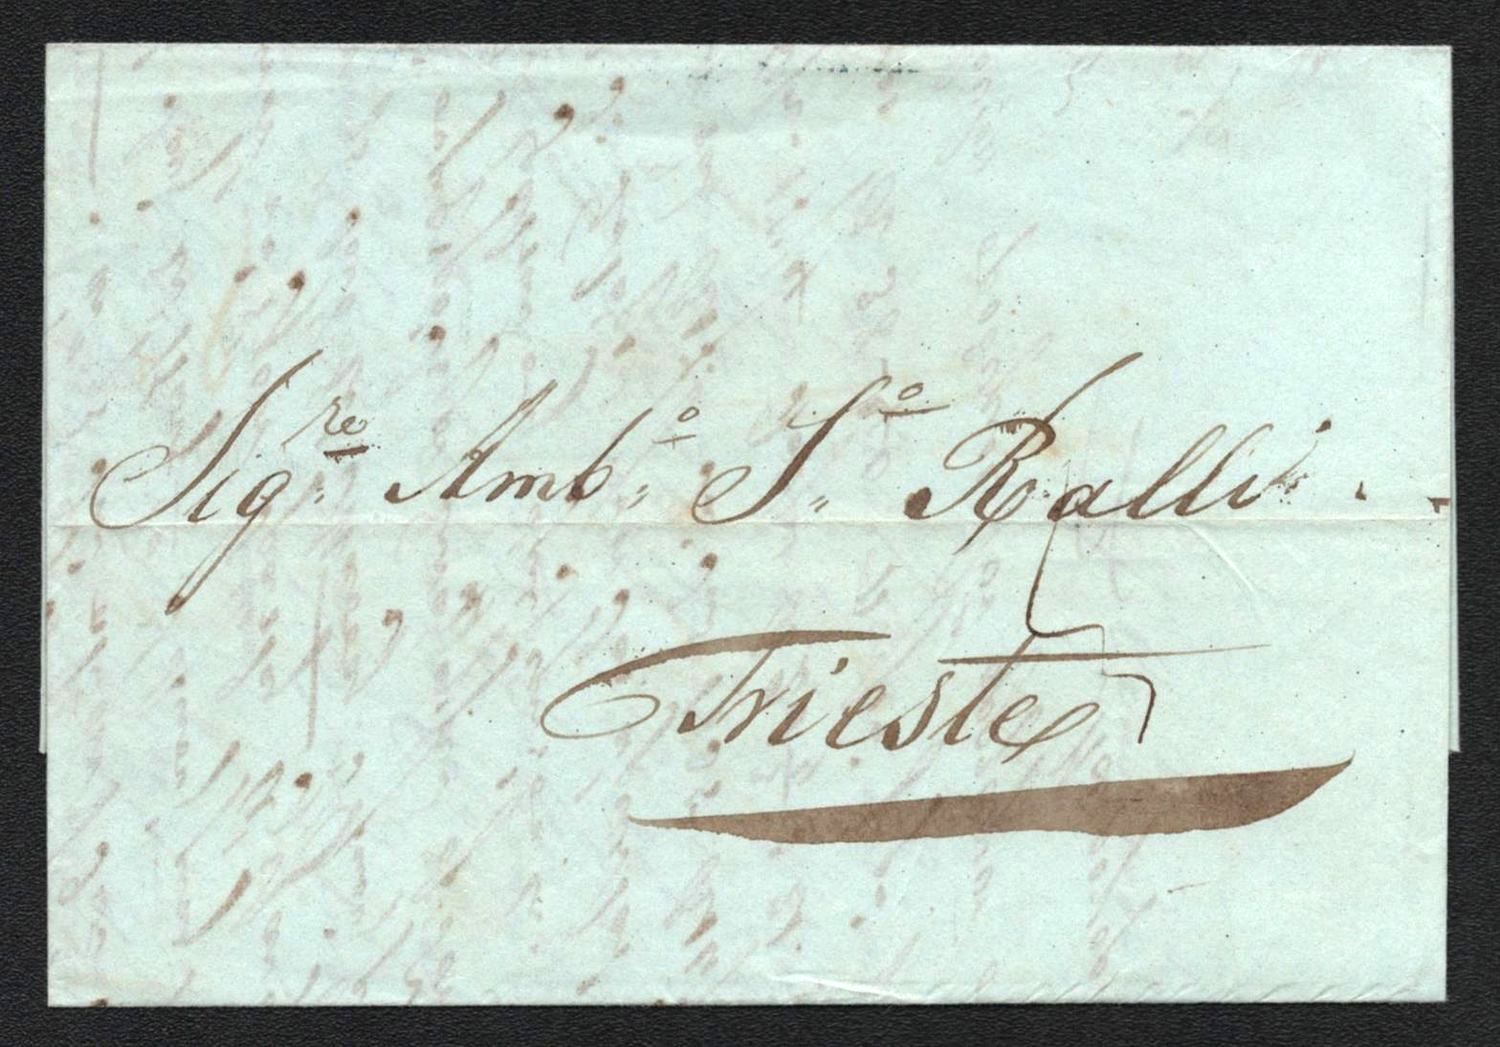 Sig.re Amb.o S.o Ralli
Trieste